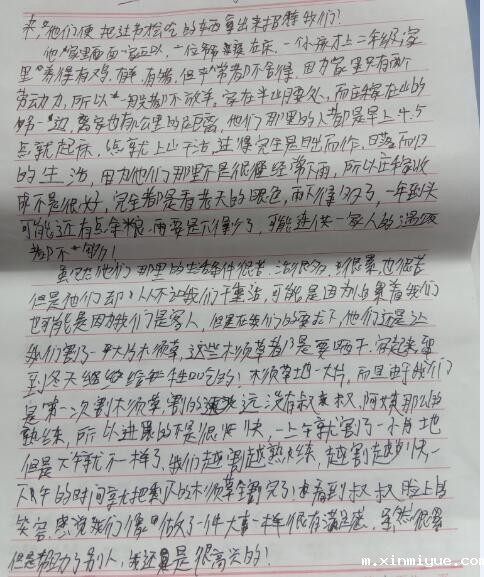 来,他们便把过节才吃的东西拿出来招待我们!
他家里面一家五口,一位躺在床,一个孩才上二年级,家
里养得有鸡,有羊,有猪,但平常都不舍得,因为家里只有两个
劳动力,所以一般都不放羊,家在半山腰处,而庄稼在山的
另一边,离家也有几公里的距离,他们那里的人都是早上4、5
点就起床,点就上山干活,过得完全是日出而作,日落而归
的生活,因为他们那里不是很经常下雨,所以庄稼收
成不是很好,完全都是看老天的眼色,雨不多了,一年到头
可能还有点余粮,雨要是不多,可能连供一家人的温饱
都不够!
虽然他们那里的生活条件很苦,活很多,很累也很苦
但是他们却从不让我们干重活,可能是因为怕累着我们
也可能是因为我们是客人,但是在我们的要求下,他们还是让
我们割了一大片木须草,这些木须草都是要晒干,存起来留
到冬天给牲口吃的!木须草地一大片,而且由于我们
是第一次割木须草,割的速度远没有叔叔,阿姨那么的
熟练,所以进展的不是很快,一上午就割了一小片地
但是下午就不一样了,我们越割越熟练,越割越快,一
下午的时间就把剩下的木须草全割完了!看到叔叔脸上的
笑容,感觉我们像是做了一件大事一样很有满足感,虽然很累
但是帮助了别人,我还是很高兴的!
m.xinmiyue.com